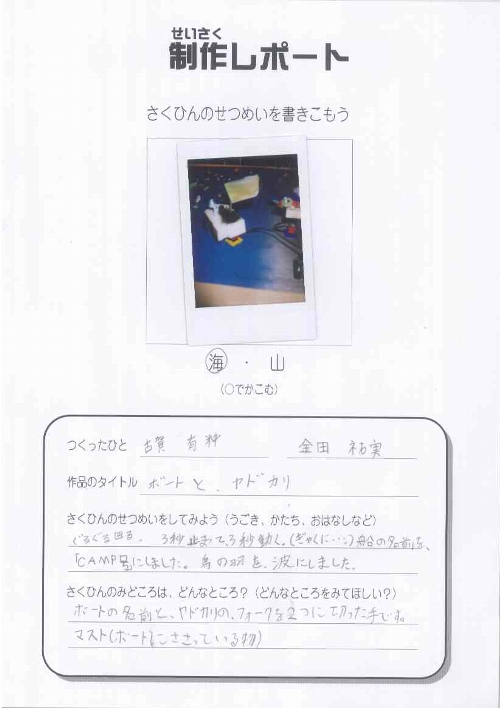 せいさく
制作レポート
さくひんのせつめいを書きこもう
海 ・ 山
(○でかこむ)
つくったひと 古賀 有 金田 祐実
作品のタイトル ボートと、ヤドカリ
さくひんのせつめいをしてみよう (うごき、かたち、おはなしなど)
ぐるぐる回る。3秒止まって、3秒動く。(ぎゃくに…)船の名前を、
「CAMP号にしました。鳥の羽を、波にしました。
さくひんのみどころは、どんなところ? (どんなところをみてほしい?)
ボートの名前と、ヤドカリの、フォークを2つに切った手です。
マスト(ボートにささっている物)